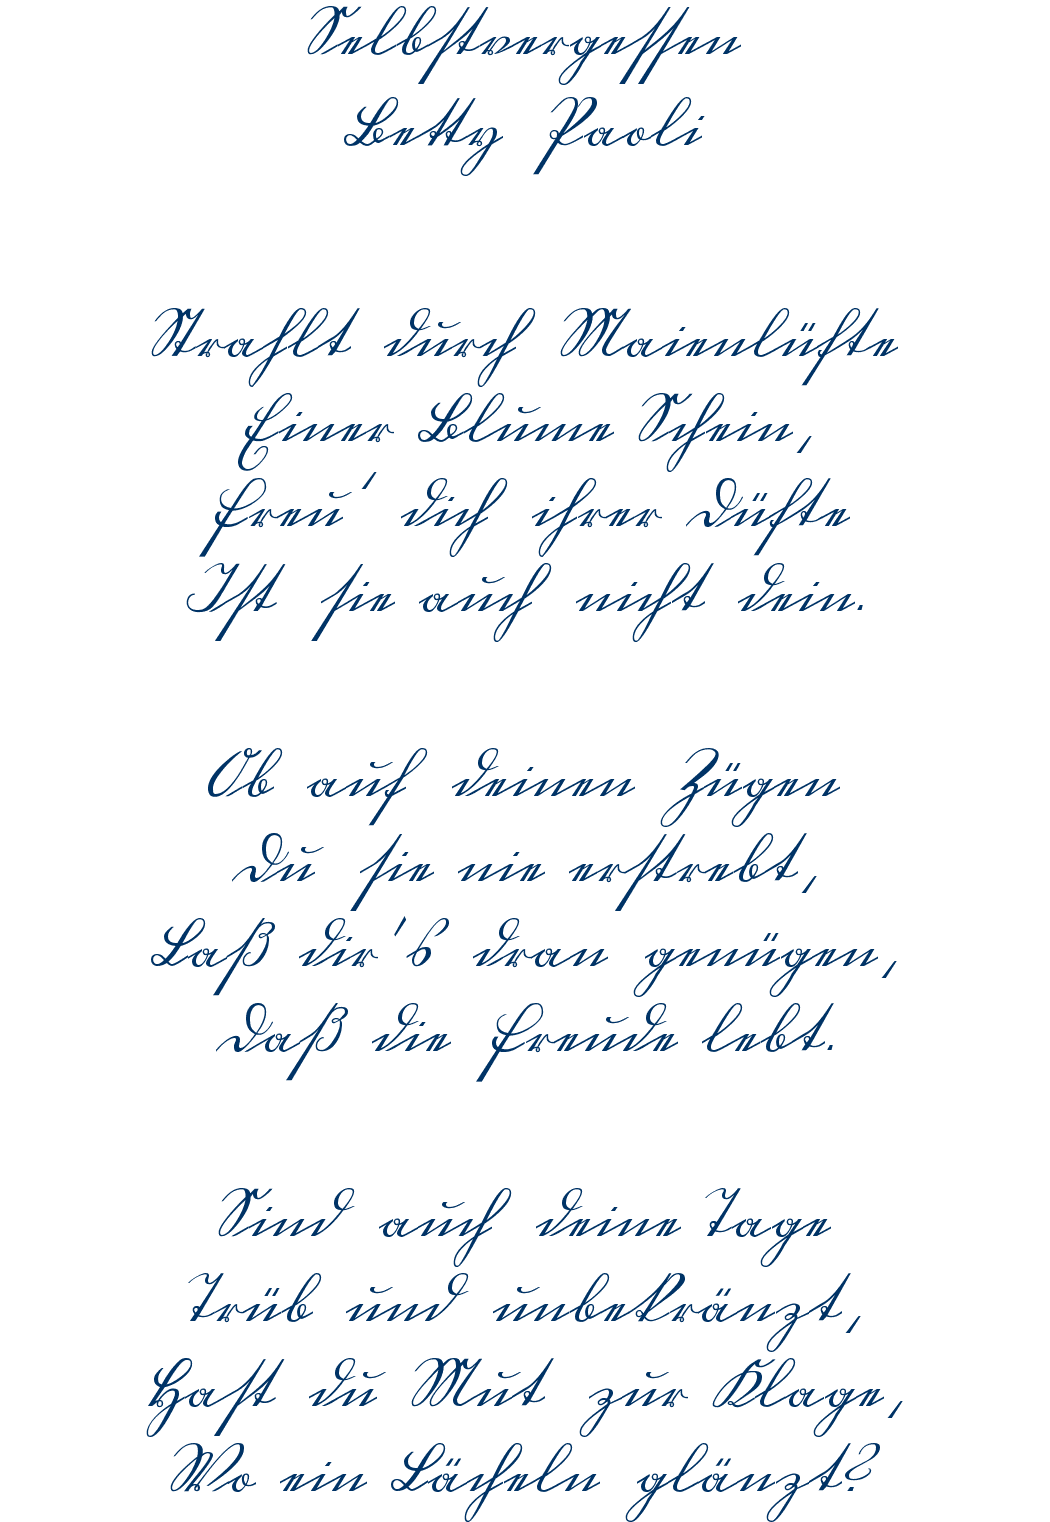 Selbstvergessen
Betty Paoli
Strahlt durch Maienlüfte
Einer Blume Schein,
Freu' dich ihrer Düfte
Ist sie auch nicht dein.
Ob auf deinen Zügen
Du sie nie erstrebt,
Laß dir's dran genügen,
Daß die Freude lebt.
Sind auch deine Tage
Trüb und unbekränzt,
Hast du Mut zur Klage,
Wo ein Lächeln glänzt?